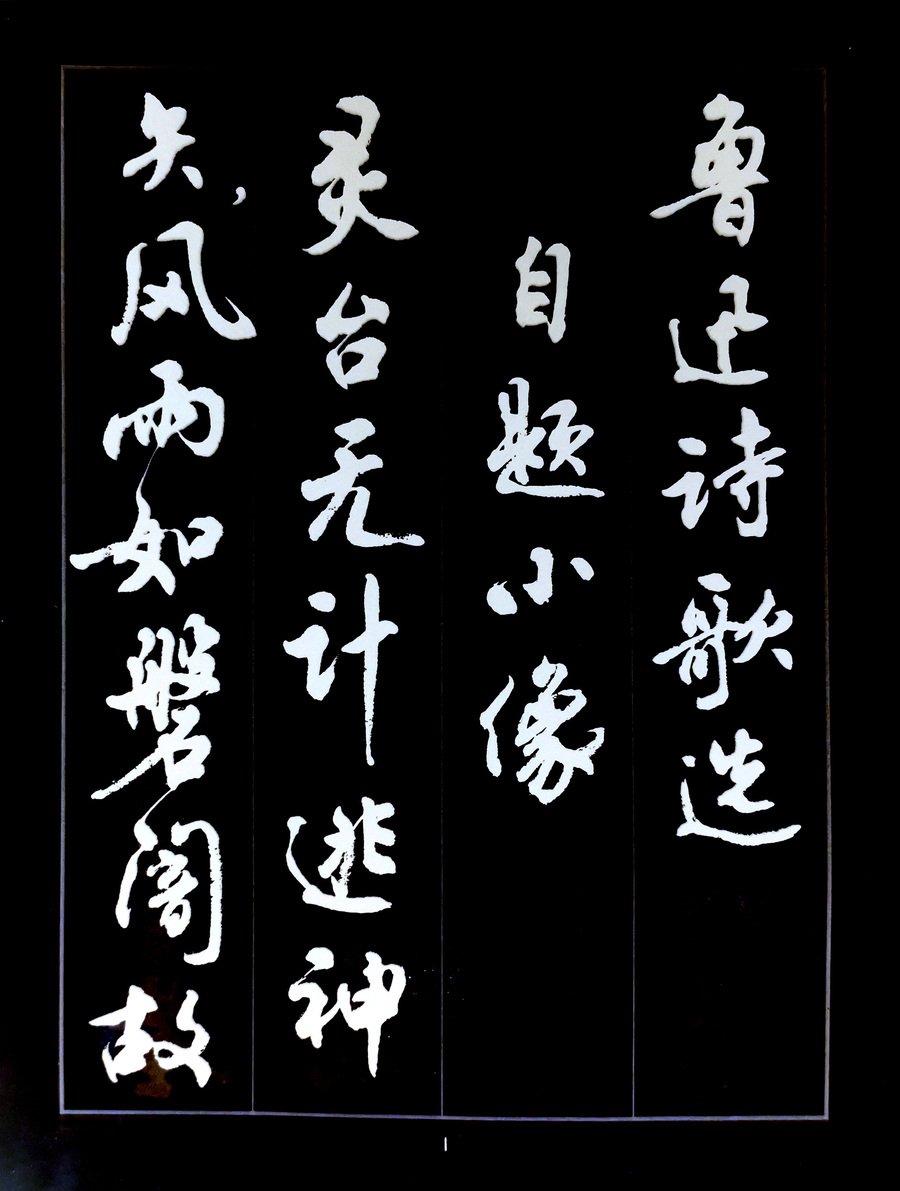 鲁迅诗歌选
自题小像
灵台无计逃神
矢,风雨如磐闇故
1